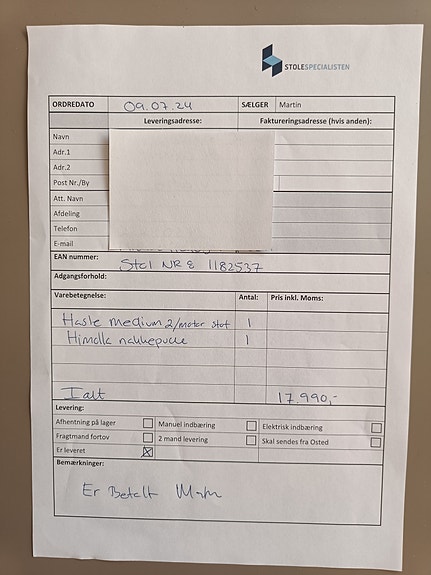 STOLESPECIALISTEN
ORDREDATO 09.07.24 SÆLGER Martin
Leveringsadresse: Faktureringsadresse (hvis anden):
Navn
Adr.1
Adr.2
Post Nr./By
Att. Navn
Afdeling
Telefon
E-mail
EAN nummer: Stol NR 8 1182537
Adgangsforhold:
Varebetegnelse: Antal: Pris inkl. Moms:
Hasle medium 2/motor stof 1
Himolla nakkepude 1
Ialt 17.990,-
Levering:
Afhentning på lager Manuel indbæring Elektrisk indbæring
Fragtmand fortov 2 mand levering Skal sendes fra Osted
Er leveret
Bemærkninger:
Er Betalt